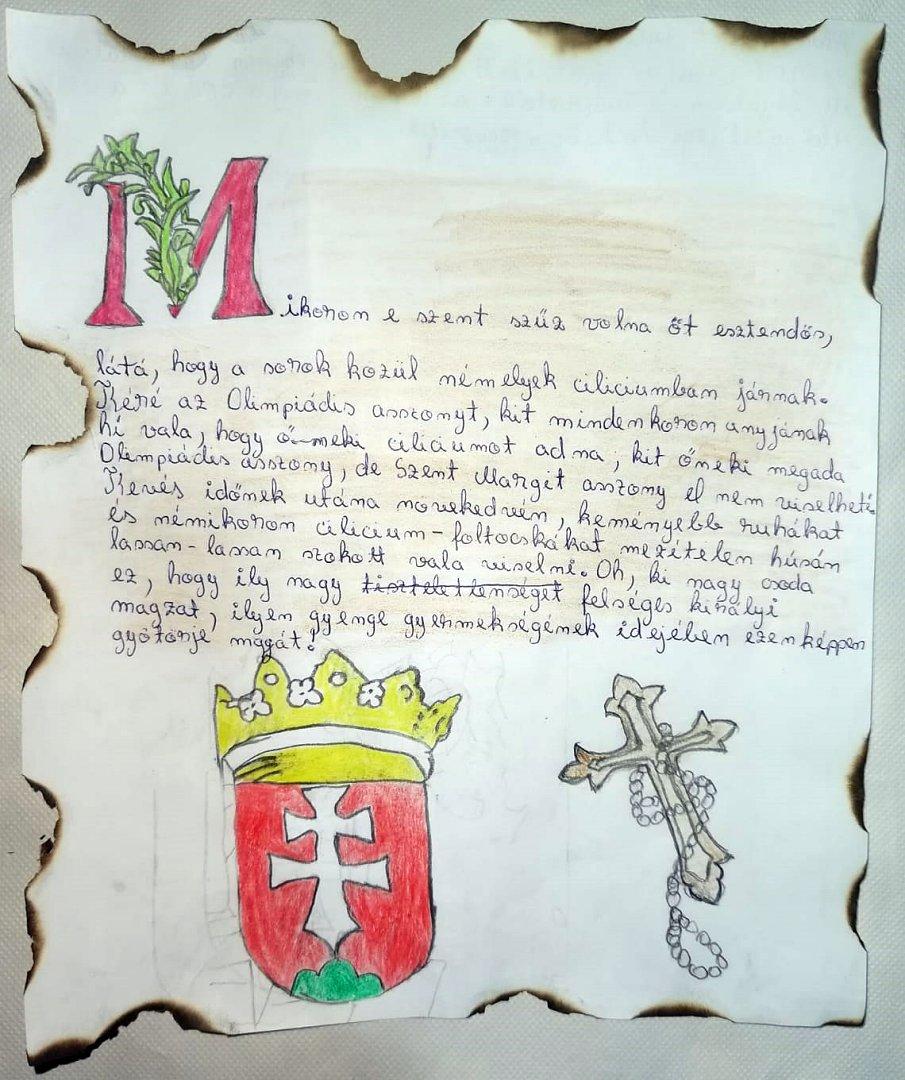 Mikoron e szent szűz volna öt esztendős,
látá, hogy a sorok közül némelyek ciliciumban járnak.
Kéré az Olimpiádis asszonyt, kit mindenkoron anyjának
hí vala, hogy ő-neki ciliciumot adna, kit őneki megada
Olimpiádis asszony, de Szent Margit asszony el nem viselheti
Kevés időnek utána növekedvén, keményebb ruhákat
és némikoron cilicium-foltocskákat mezítelen húsán
lassan-lassan szokott vala viselni. Oh, ki nagy csoda
ez, hogy ily nagy tisztelettenséget felséges királyi
magzat, ilyen gyenge gyermekségének idejében ezenképpen
gyötörje magát!